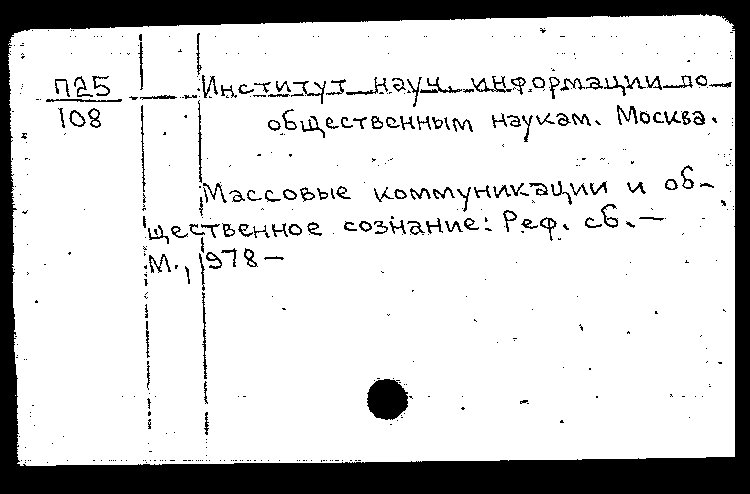 П25 Институт науч. информации по
108 общественным наукам. Москва.
Массовые коммуникации и об-
щественное сознание: Реф. сб. —
М., 1978 —